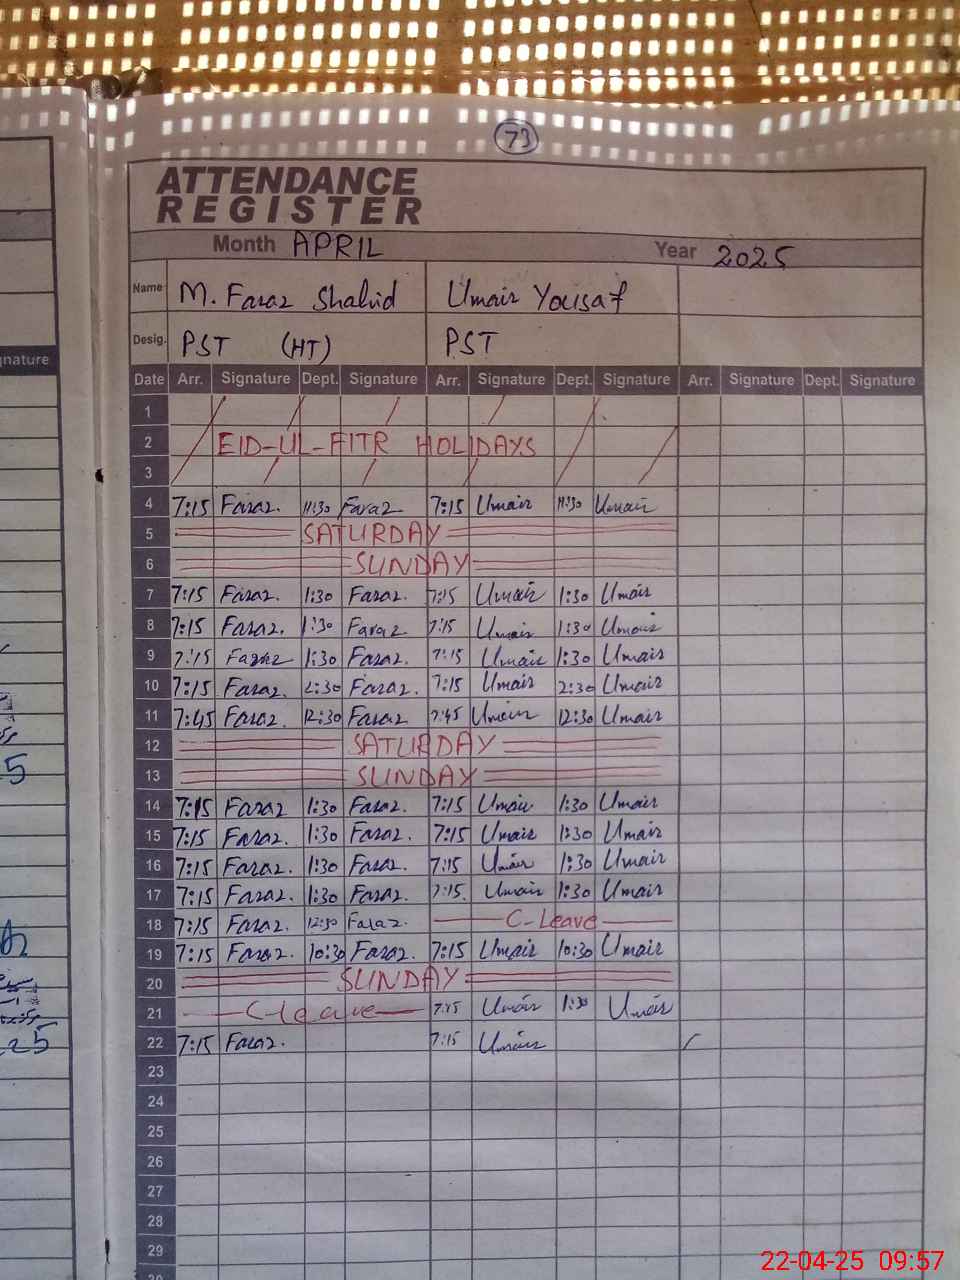 73
ATTENDANCE
REGISTER
Month APRIL Year 2025
Name M. Faraz Shahid Umair Yousaf
Desig. PST (HT) PST
nature
Date Arr. Signature Dept. Signature Arr. Signature Dept. Signature Arr. Signature Dept. Signature
1
2 EID-UL-FITR HOLIDAYS
3
4 7:15 Faraz. 11:30 Faraz 7:15 Umair 11:30 Umair
5 SATURDAY
6 SUNDAY
7 7:15 Faraz. 1:30 Faraz. 7:15 Umair 1:30 Umair
8 7:15 Faraz. 1:30 Faraz 7:15 Umair 1:30 Umair
9 7:15 Faraz 1:30 Faraz. 7:15 Umair 1:30 Umair
10 7:15 Faraz. 2:30 Faraz. 7:15 Umair 2:30 Umair
11 7:45 Faraz. 12:30 Faraz 7:45 Umair 12:30 Umair
12 SATURDAY
13 SUNDAY
14 7:15 Faraz 1:30 Faraz. 7:15 Umair 1:30 Umair
15 7:15 Faraz. 1:30 Faraz. 7:15 Umair 1:30 Umair
16 7:15 Faraz. 1:30 Faraz. 7:15 Umair 1:30 Umair
17 7:15 Faraz. 1:30 Faraz. 7:15. Umair 1:30 Umair
18 7:15 Faraz. 12:30 Faraz. C-Leave
19 7:15 Faraz. 10:30 Faraz. 7:15 Umair 10:30 Umair
20 SUNDAY
21 C-leave 7:15 Umair 1:30 Umair
22 7:15 Faraz. 7:15 Umair
23
24
25
26
27
28
29
30
5
25
22-04-25 09:57